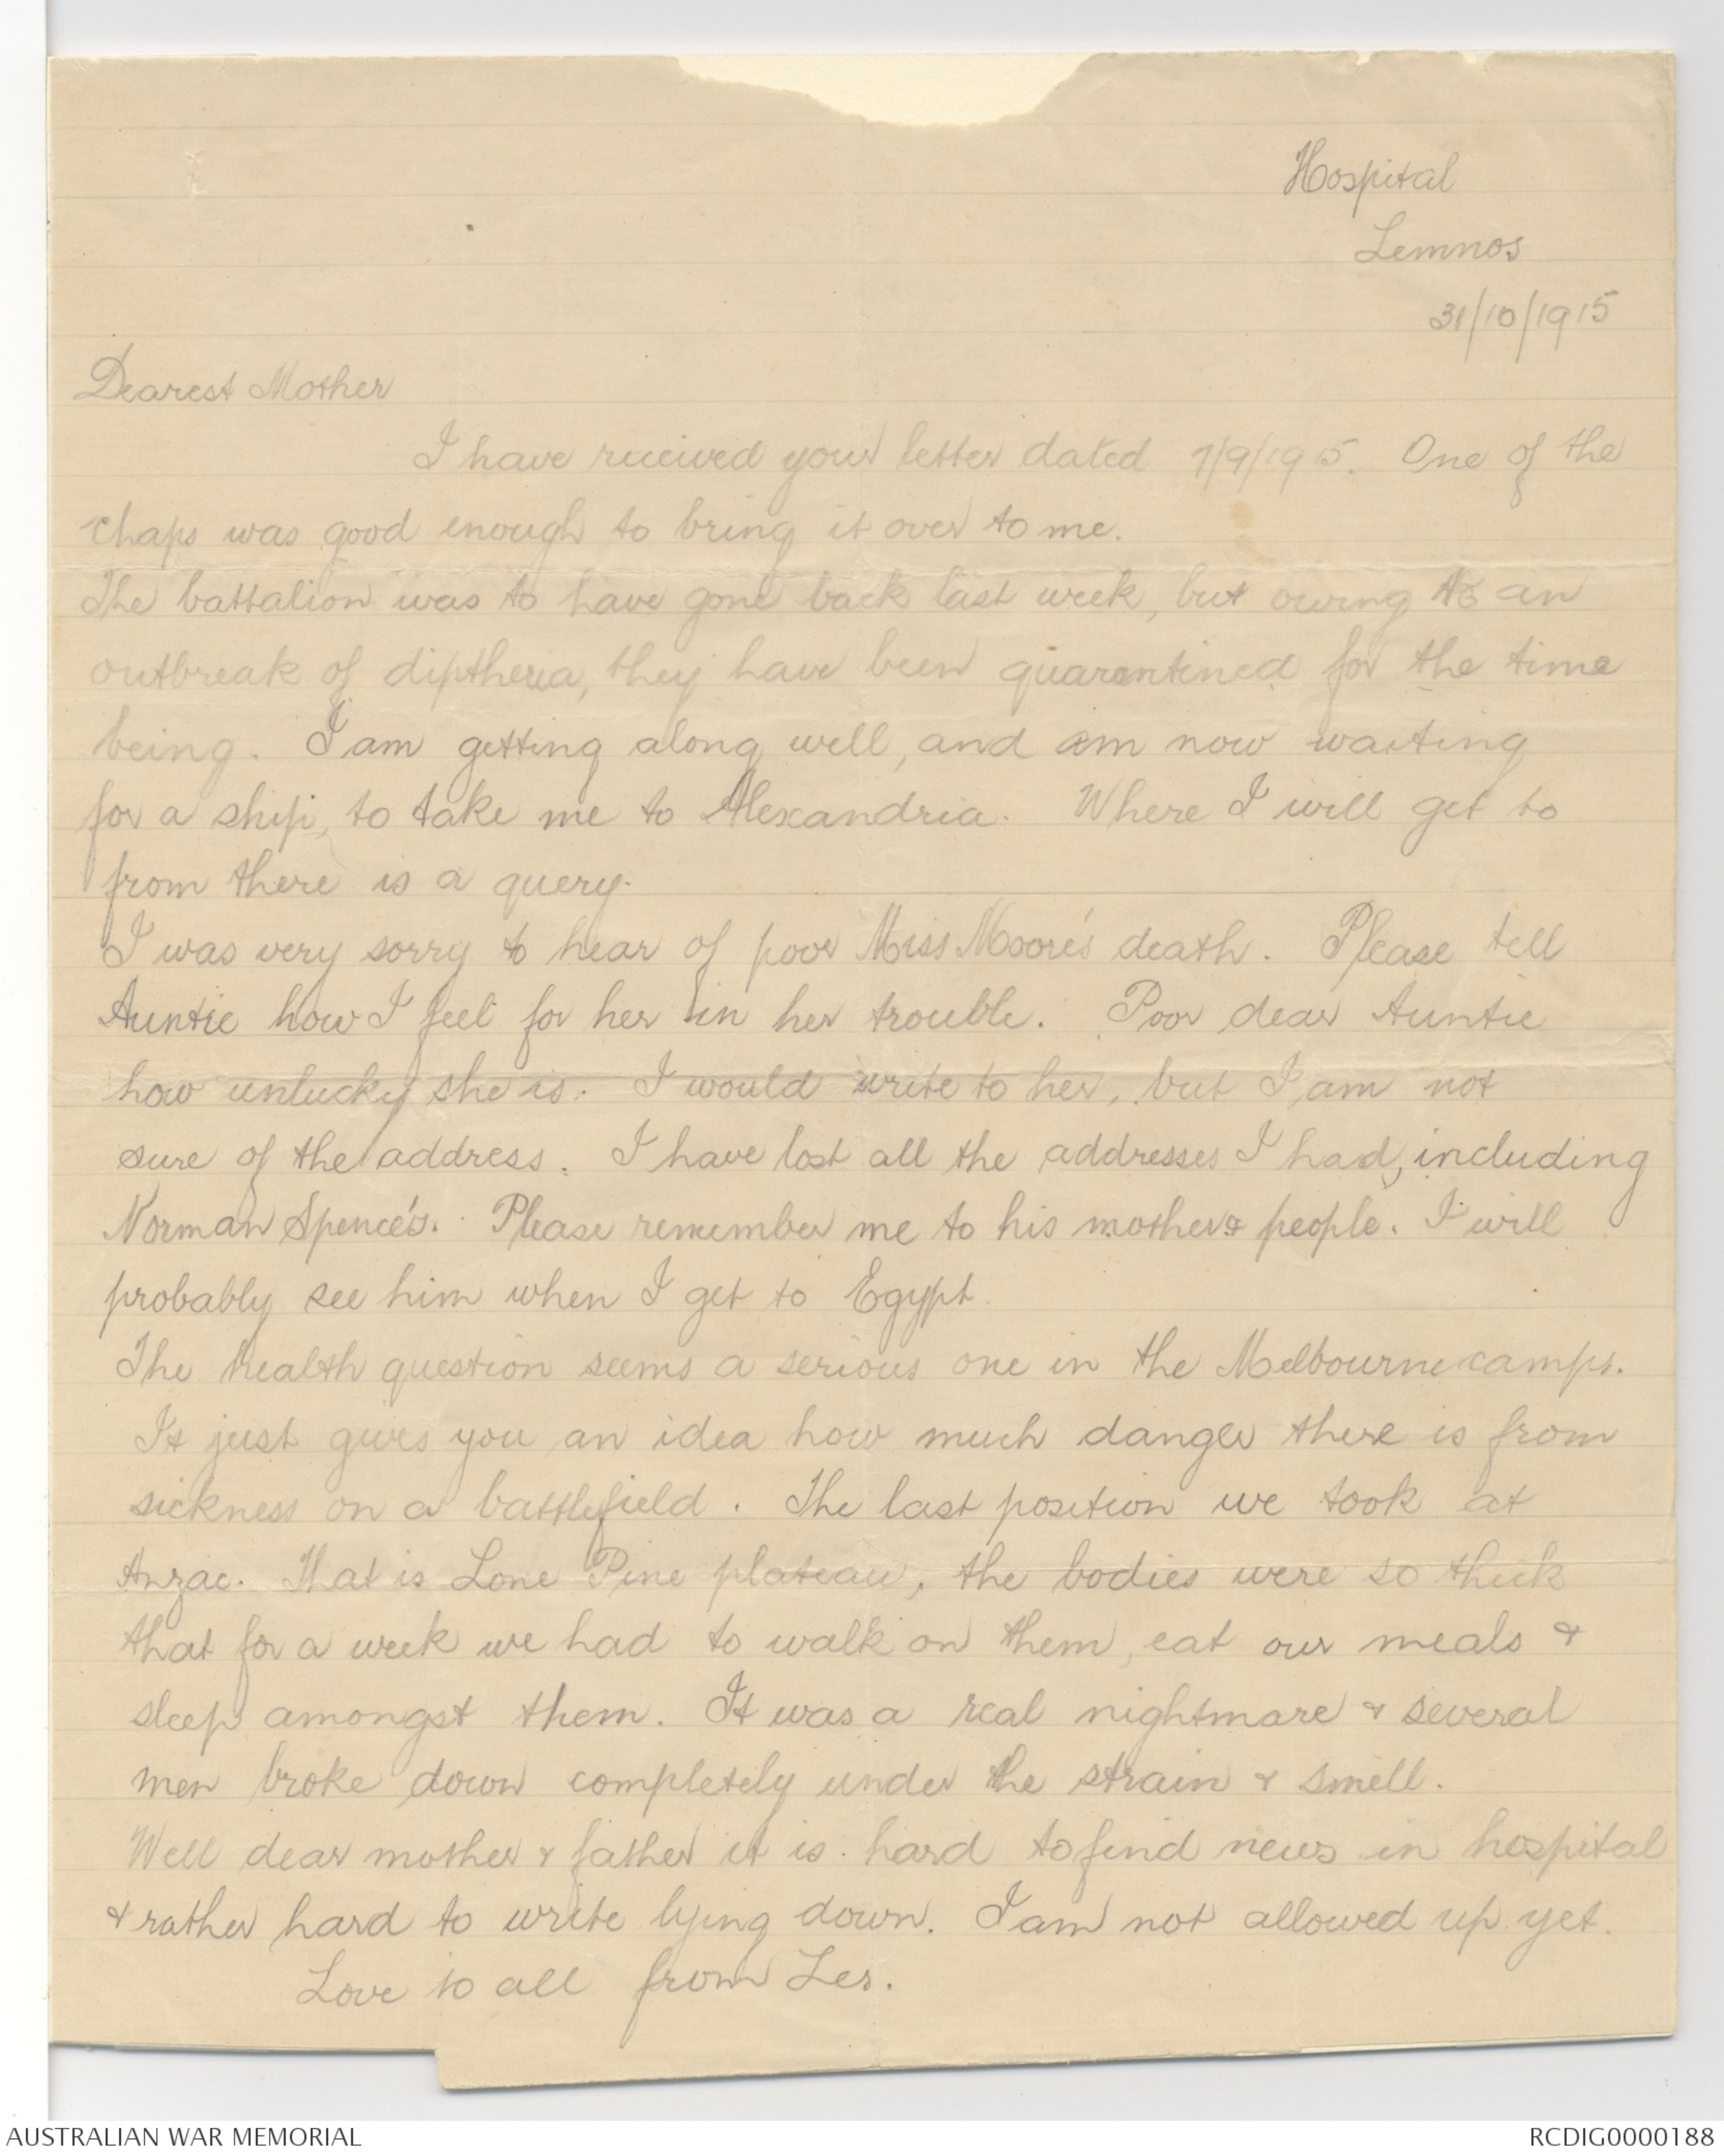 Hospital
Lemnos
31/10/1915
Dearest Mother
I have received your letter dated 7/9/1915. One of the
chaps was good enough to bring it over to me.
The battalion was to have gone back last week, but owing to an
outbreak of diptheria, they have been quarantined for the time
being. I am getting along well, and am now waiting
for a ship, to take me to Alexandria. Where I will get to
from there is a query.
I was very sorry to hear of poor Miss Moore's death. Please tell
Auntie how I feel for her in her trouble. Poor dear Auntie
how unlucky she is. I would write to her, but I am not
sure of the address. I have lost all the addresses I had, including
Norman Spence's. Please remember me to his mother & people. I will
probably see him when I get to Egypt.
The health question seems a serious one in the Melbourne camps.
It just gives you an idea how much danger there is from
sickness on a battlefield. The last position we took at
Anzac. That is Lone Pine plateau, the bodies were so thick
that for a week we had to walk on them, eat our meals &
sleep amongst them. It was a real nightmare & several
men broke down completely under the strain & smell.
Well dear mother & father it is hard to find news in hospital
& rather hard to write lying down. I am not allowed up yet.
Love to all from Les.
AUSTRALIAN WAR MEMORIAL
RCDIG0000188